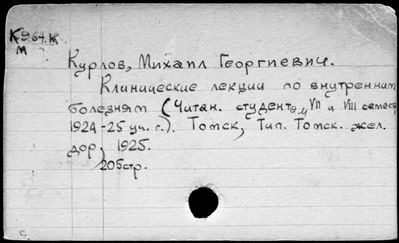 К964.К
М
Курлов, Михаил Георгиевич.
Клинические лекции по внутренним
болезням (Читан. студентам VII и VIII семестр
1924-25 уч. г.). Томск, Тип. Томск. жел.
дор., 1925.
205стр.
с.